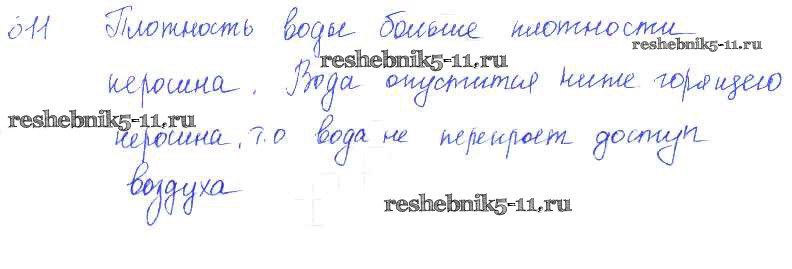 611 Плотность воды больше плотности
reshebnik5-11.ru
reshebnik5-11.ru
керосина. Вода опустится ниже горящего
reshebnik5-11.ru
керосина, т.о вода не перекроет доступ
воздуха
reshebnik5-11.ru